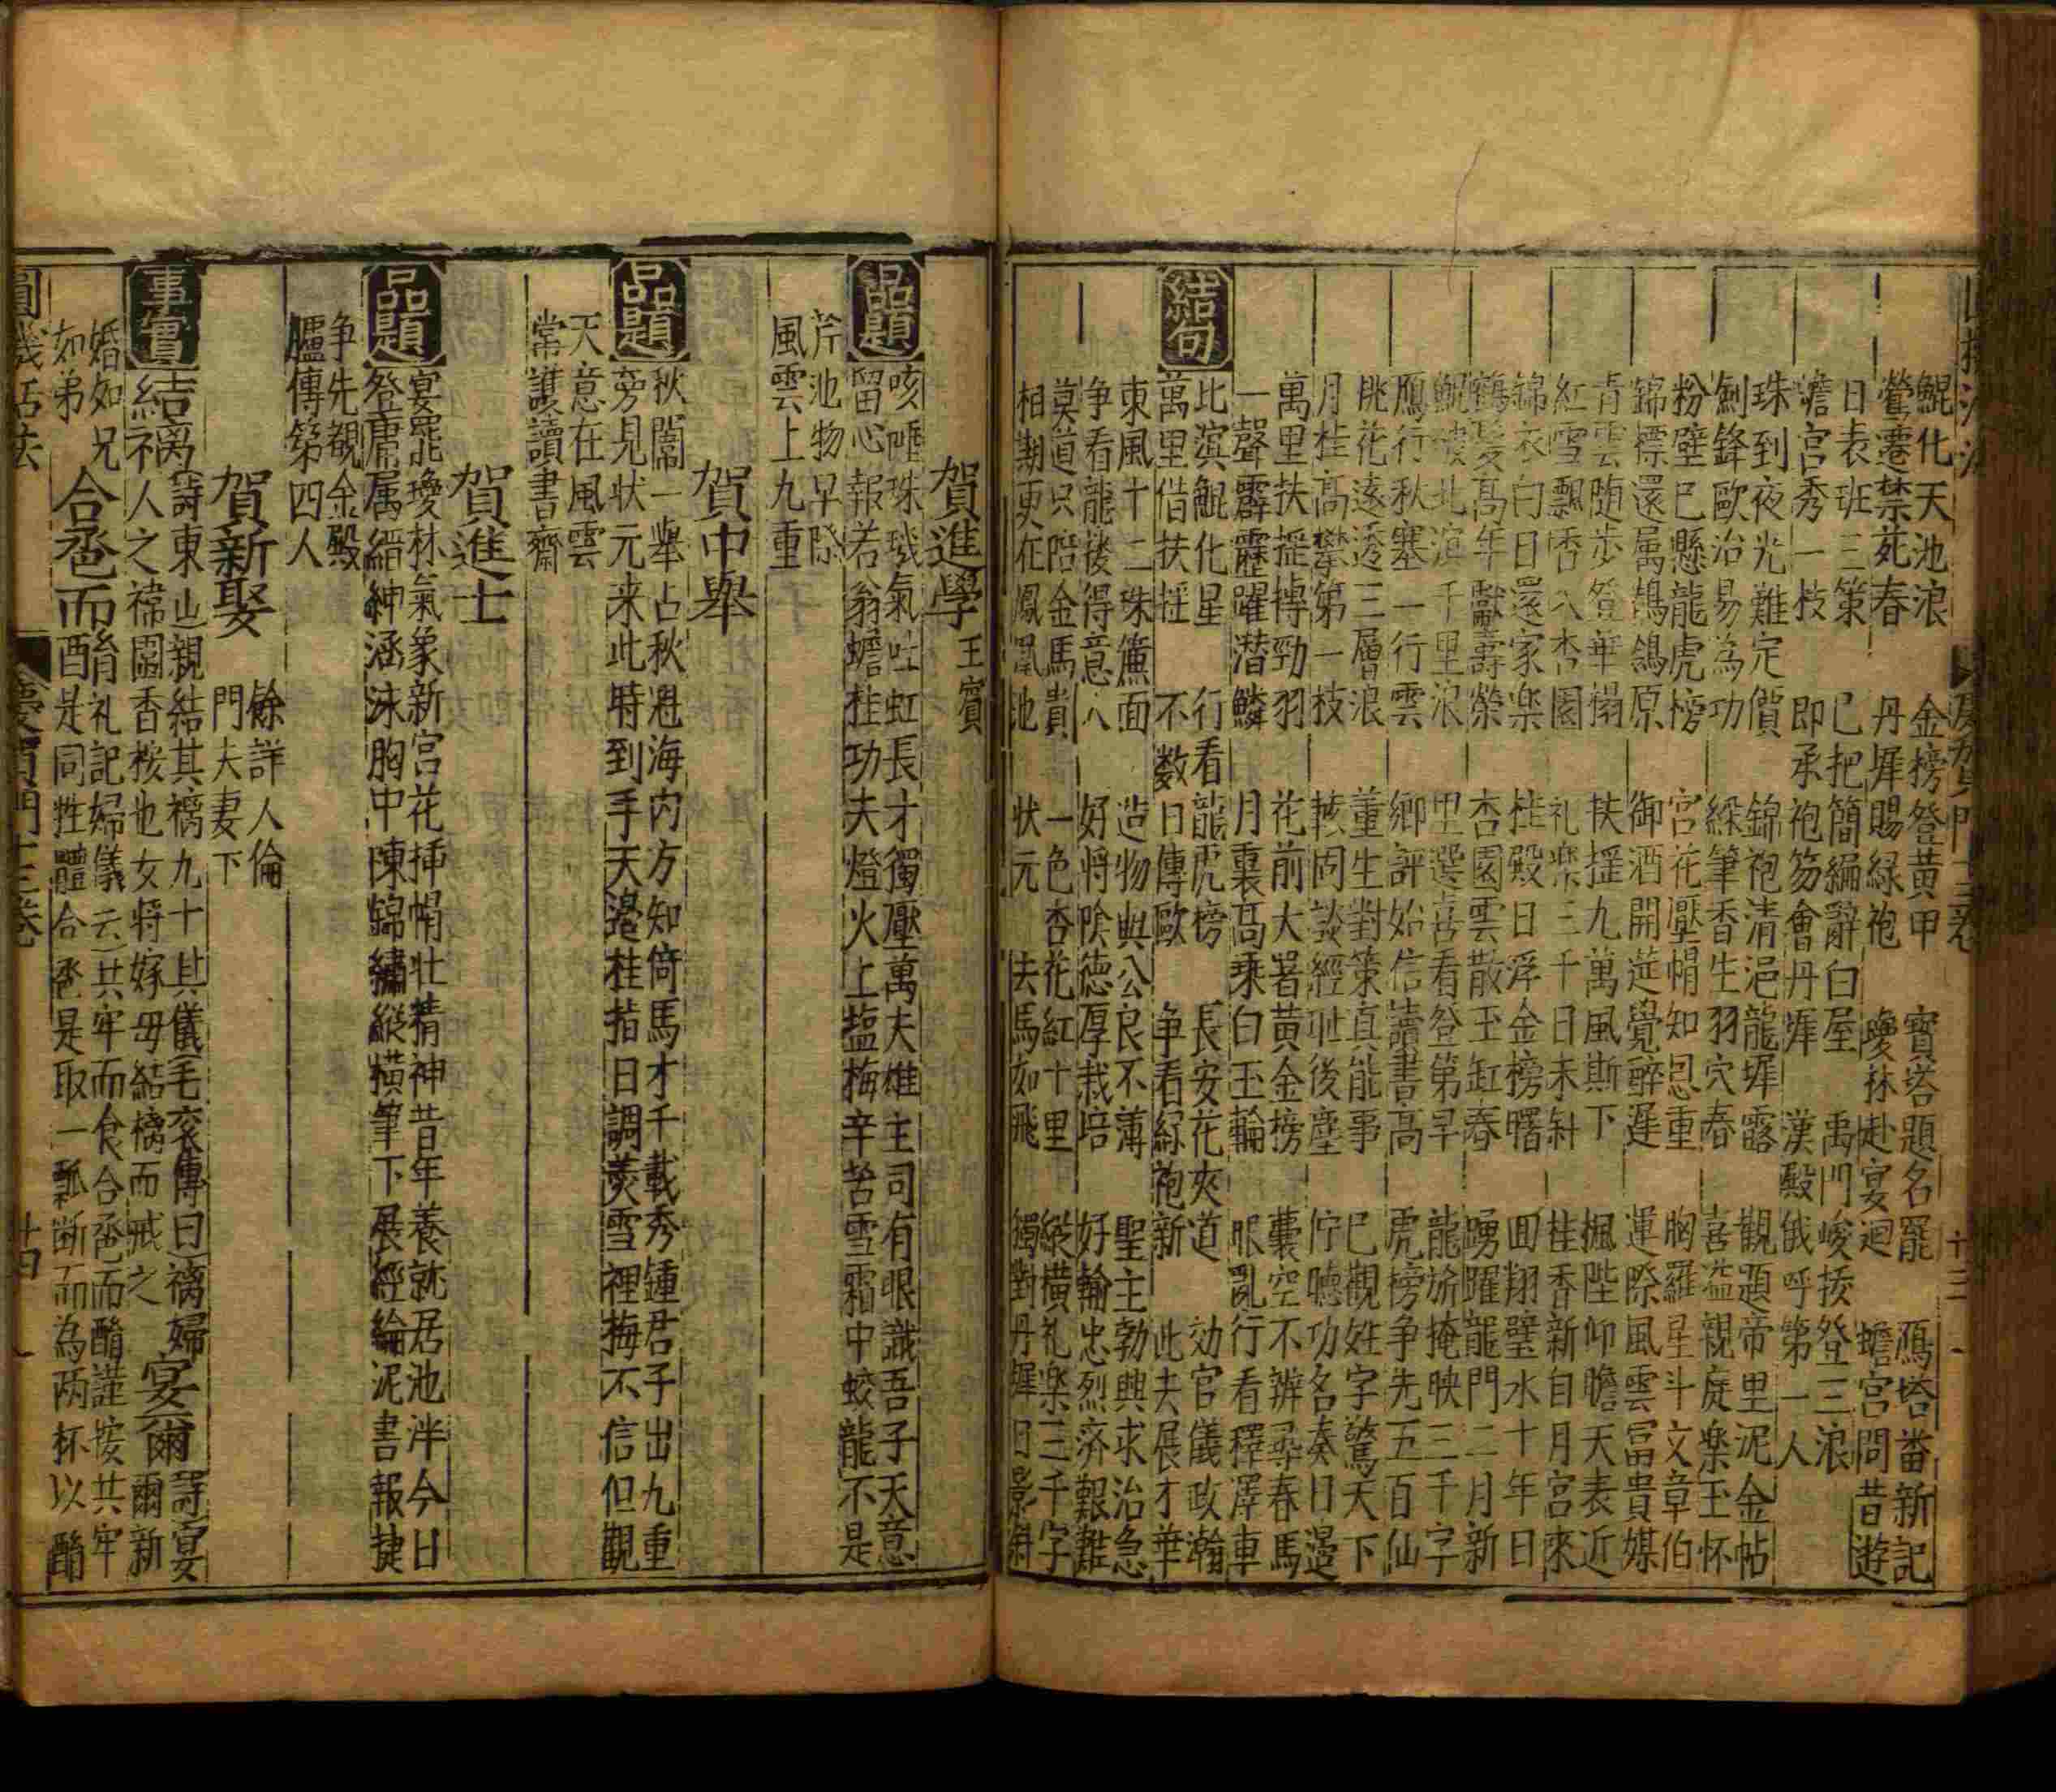 慶賀門十三卷 十三
鯤化天池浪 金榜登黃甲 寶塔題名罷 鴈塔畨新記
鶯遷禁苑春 丹墀賜綠袍 瓊林赴宴迴 蟾宮問昔遊
日表班三策 已把簡編辭白屋 禹門峻接登三浪
蟾宮秀一枝 即承袍笏會丹墀 漢殿俄呼第一人
珠到夜光難定價 錦袍清浥龍墀露 觀題帝里泥金帖
劍鋒歐冶易為功 綵筆香生羽穴春 喜溢親庭樂玉怀
粉壁已懸龍虎榜 宮花壓帽知恩重 胸羅星斗文章伯
錦標還属鶺鴒原 御酒開筵覺醉遲 運際風雲富貴媒
青雲随步登華榻 扶揺九萬風斯下 楓陛仰瞻天表近
紅雪飄香八杏園 礼樂三千日未斜 桂香新自月宮來
錦衣白日還家樂 桂殿日浮金榜曙 囬翔璧水十年日
鶴髮高年獻壽榮 杏園雲散玉缸春 踴躍龍門二月新
鯤化北溟千里浪 里選喜看登第早 龍旂掩映三千字
鴈行秋塞一行雲 鄉評始信讀書高 虎榜争先五百仙
桃花遠透三層浪 董生對策真能事 已觀姓字驚天下
月桂高攀第一枝 固談經耻後塵 佇聴功名奏日邉
萬里扶揺摶勁羽 花前大署黃金榜 囊空不辨尋春馬
一聲霹靂躍潜鱗 月裏高乘白玉輪 眼亂行看釋澤車
結句
此溟鯤化星 行看龍虎榜 長安花夾道 効官儀政瀚
萬里借扶揺 不数日傳歐 争看綠袍新 此夫展才華
東風十二珠簾面 造物與公良不薄 聖主勃興求治急
争看龍後得意人 好将陰德厚栽培 好輸忠烈济艱難
莫道只陪金馬貴 一色杏花紅十里 縱橫礼樂三千字
相期更在鳳凰池 状元 去馬如飛 獨對丹墀日影斜
賀進學 王賓
品題
咳唾珠璣氣吐虹長才獨壓萬夫雄主司有眼識吾子天意
留心報若翁蟾桂功夫燈火上塩梅辛苦雪霜中蛟龍不是
芹池物早際
風雲上九重
賀中舉
品題
秋闈一舉占秋魁海内方知倚馬才千載秀鍾君子出九重
旁見状元来此時到手天邉桂指日調羮雪裡梅不信但觀
天意在風雲
常護讀書齋
賀進士
品題
宴罷瓊林氣象新宮花挿帽壮精神昔年養就居池泮今日
登庸属縉紳涵泳胸中陳錦繡縱横筆下展經綸泥書報捷
争先觀金殿
臚傳第四人
賀新娶
餘詳人倫
門夫妻下
事實
結褵
詩東山親結其褵九十其儀毛衮傳曰褵婦
人之褘囩香桉也女将嫁母結褵而戒之
宴爾
詩宴
爾新
婚如兄
如弟
合卺而酳
礼記婦儀云共牢而食合卺而酳謹按共牢
是同牲體合卺是取一瓢断而為两杯以酳
圓機活法 慶賀門十三卷 十四